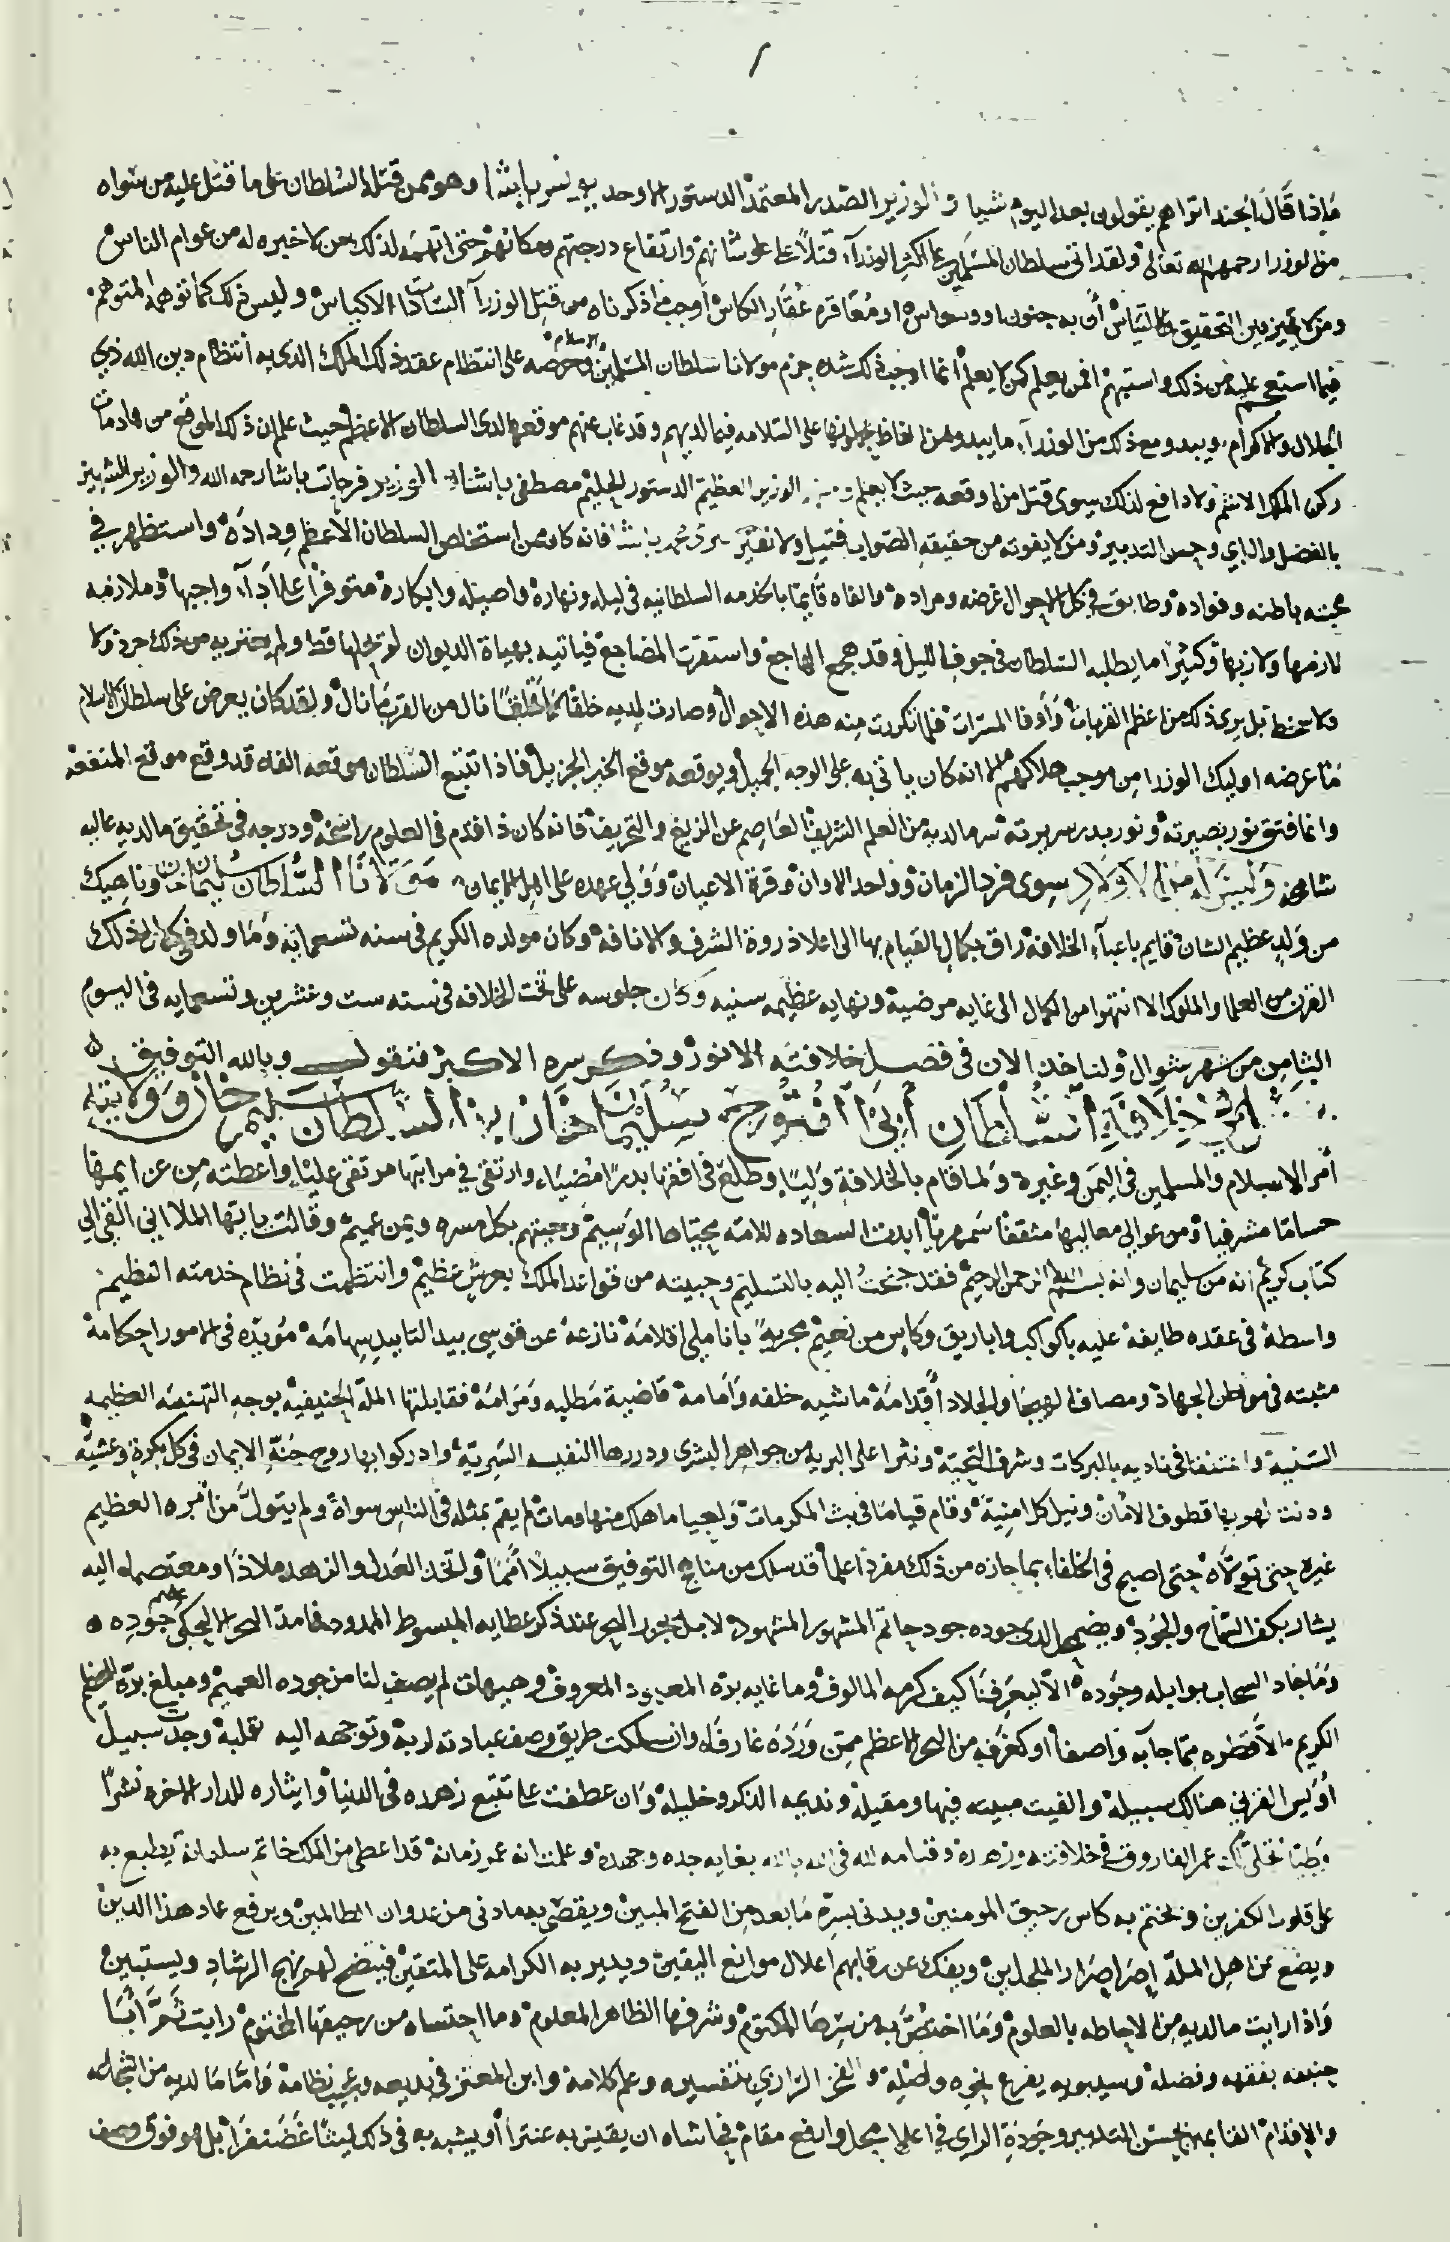 ماذا قال الجند اتراهم يقولون بعد اليوم شيا والوزير الصدر المعتمد الدستور الاوحد باشا وهو ممن قتله السلطان على ما قتل عليه من سواه
من الوزرا رحمهم الله تعالى ولقد اتى سلطان المسلمين على اكثر الوزرآء قتلا على علو شانهم وارتفاع درجتهم ومكانهم حتى اتهمه لذلك من لا خيره له من عوام الناس
ومن لا يميز بين التحقيق والتباس أن به جنون او وسواس او معاقره عقار الكاس أوجب ما ذكرناه من قتل الوزرآء السادات الاكياس وليس ذلك كما توهمه المتوهم
فيما استعجم عليه من ذلك واستبهم افمن يعلم كمن لا يعلم انما اوجب ذلك شده حزم مولانا سلطان المسلمين والاسلام وحرصه على انتظام عقد ذلك الملك الذى به انتظام دين الله ذي
الجلال والاكرام ويبدو مع ذلك من الوزرآء ما يبدو من الفاظ على السلامه فيما لديهم وقد غاب عنهم موقعها لدى السلطان الاعظم حيث علم ان ذلك الموقع من هادمات
ركن الملك الاشم ولا دافع لذلك سوى قتل من اوقعه حيث لا يعلم الوزير العظيم الدستور الحليم مصطفى باشا الوزير فرحات باشا رحمه الله والوزير الشهير
بالفضل والراي وحسن التدبير ومن لا يفوته من حقيقة الصواب فتيل ولا نقير محمد باشا فانه كان ممن استخلص السلطان الاعظم وداده واستظهر في
محبته باطنه وفواده وطابق في كل الاحوال غرضه ومراده والفاه قآيما بالخدمه السلطانيه في ليله ونهاره واصيله وابكاره متوفرا على ادآء واجبها وملازمه
لازمها ولازبها وكثيرا ما يطلبه السلطان في جوف الليل وقد هجع الهاجع واستقرت المضاجع فياتيه بهياة الديوان لم يخلها قط ولم يعتريه من ذلك حرد ولا
ولا سخط بل يرى ذلك من اعظم القربات وأوفا المسرات فلما تكررت منه هذه الاحوال وصارت لديه خلقا نال من القرب ما نال ولقد كان يعرض على سلطان الاسلام
ما عرضه اوليك الوزرا من موجب هلاكهم الا انه كان ياتي به على الوجه الجميل ويوقعه موقع الخير الجزيل فاذا تتبع السلطان موقعه الفاه قد وقع موقع المنفعه
وانما فتق نور بصيرته ونور بدر سريرته ما لديه من العلم الشريف العاصم عن الزيغ والتحريف فانه كان ذا قدم في العلوم راسخة ودرجه في تحقيق ما لديه عاليه
شامخه وليس له من الاولاد سوى فرد الزمان وواحد الاوان وقرة الاعيان وولي عهده على اهل الايمان مولانا السلطان سليمان خان وناهيك
من ولد عظيم الشان قايم باعبآء الخلافه راق بكمال القيام بها الى اعلا ذروة الشرف والانافه وكان مولده الكريم في سنه تسعمايه وما ولد في ذلك
القرن من العلما والملوك الا انتهوا من الكمال الى غايه مرضية ونهايه عظيمه سنيه وكان جلوسه على تخت الخلافه في سنه ست وعشرين وتسعمايه في اليوم
الثامن من شهر شوال ولناخذ الان في فضل خلافته الانور وذكر سره الاكبر فنقول وبالله التوفيق
خلافة السلطان أبي الفتوح سليمان خان بن السلطان سليم خان وولايته
أمر الاسلام والمسلمين في اليمن وغيره ولما قام بالخلافة وليا وطلع في افقها بدرا مضيا وارتقى في مراتبها مرتقى عليا واعطته من عزايمها
حساما مشرفيا ومن عوالي معاليها مثقفا سمهريا أبدت السعاده للامه محياها الوسيم وحيتهم بكل مسره ويمن عميم وقالت يا ايها الملا اني القي الي
كتاب كريم انه من سليمان وانه بسم الله الرحمن الرحيم فقد جنحت اليه بالتسليم وحبيته من قواعد الملك بعرش عظيم وانتظمت في نظام خدمته العظيم
واسطة في عقده طايفة عليه باكواب واباريق وكاس من نعيم بانامل اقلامه نازعة عن قوسي بيد التاييد سهامه مويده في الامور احكامه
مثبته في مواطن الجهاد ومصاف الهيجا والجلاد أقدامه ماشيه خلفه وأمامه قاضية مطلبه ومرامه فقابلتها الملة الحنيفيه بوجه التهنيه العظيمه
السنيه في ناديه بالبركات وشرف التحية ونثرا على البريه من جواهر البشرى ودررها النفيسه السرية وادركوا بها روح جنة الايمان في كل بكرة وعشية
ودنت لهم بها قطوف الامان ونيل كل امنية وقام قياما في بث المكرمات واحيا ما هلك منها ومات لم يقم بمثله في الناس سواه ولم يتول من أمره العظيم
غيره حتى تولاه حتى اصبح في الخلفاء بما حازه من ذلك مفردا علما قد سلك من مناهج التوفيق سبيلا أمما واتخذ العدل والزهد ملاذا ومعتصما اليه
يشار بكف السماح والجود ويضمحل لدى جوده جود حاتم المشهور المشهود لا بل يجزر البحر عند ذكر عطايه المبسوط الممدود فما مد البحر الا ليحكي جوده
وما جاد السحاب بوابله وجوده الا ليعرفنا كيف كرمه المالوف وما غايه بره المعهود المعروف وهيهات لم يصف لنا من جوده العميم ومبلغ بره
الكريم الا قطره مما جآء واصفا او كغرفه من البحر الاعظم ممن ورده غارفا وان سلكت طريق وصف عبادته لربه وتوجهه اليه بقلبه وجدت سبيل
أويس القرني هنالك سبيله والفيت مبيته فيها ومقيله ونديمه الذكر وخليله وان عطفت على تتبع زهده في الدنيا وايثاره للدار الاخره نشرا
وطيا عمر الفاروق في خلافته وزهده وقيامه لله في الله بالله بغايه جده وجهده وعلمت انه عمر زمانه قد اعطي من الملك خاتم سليمانه يطبع به
على قلوب الكفرين ويختم به كاس رحيق المومنين ويدني بسره ما بعد من الفتح المبين ويقصي به ما دنى من عدوان الظالمين ويرفع عماد هذا الدين
ويضع عن اهل الملة إصر إصرار الملحدين ويفك عن رقابهم اغلال موانع اليقين ويدير به الكرامه على المتقين فيتضح لهم نهج الرشاد ويستبين
واذا رايت ما لديه من الاحاطه بالعلوم وما اختص به من سرها المكتوم وشرفها الظاهر المعلوم وما احتساه من رحيقها المختوم رايت ثم أبا
حنيفه بفقهه وفضله وسيبويه بفرع نحوه واصله والفخر الرازي بتفسيره وعلم كلامه وابن المعتز في بديعه وعجيب نظامه واما ما لديه من الشجاعه
والاقدام بحسن التدبير وجودة الراي في اعلا محل وارفع مقام فحاشاه ان يقيس به عنترا أو يشبه به في ذلك ليثا غضنفرا بل هو فوق وصف